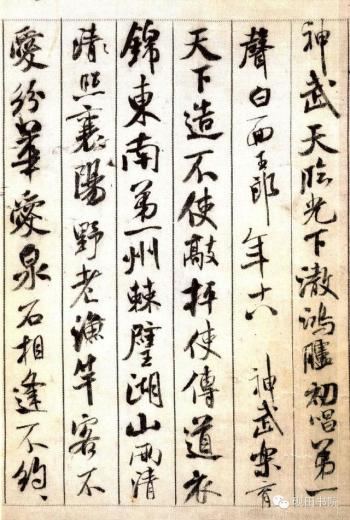 神武天臨光下澈鴻臚初唱第一
聲白面王郎年十八 神武樂育
天下造不使敲枰使傳道衣
錦東南第一州棘璧湖山兩清
照襄陽野老漁竿客不
愛紛華愛泉石相逢不約、
砚田书院